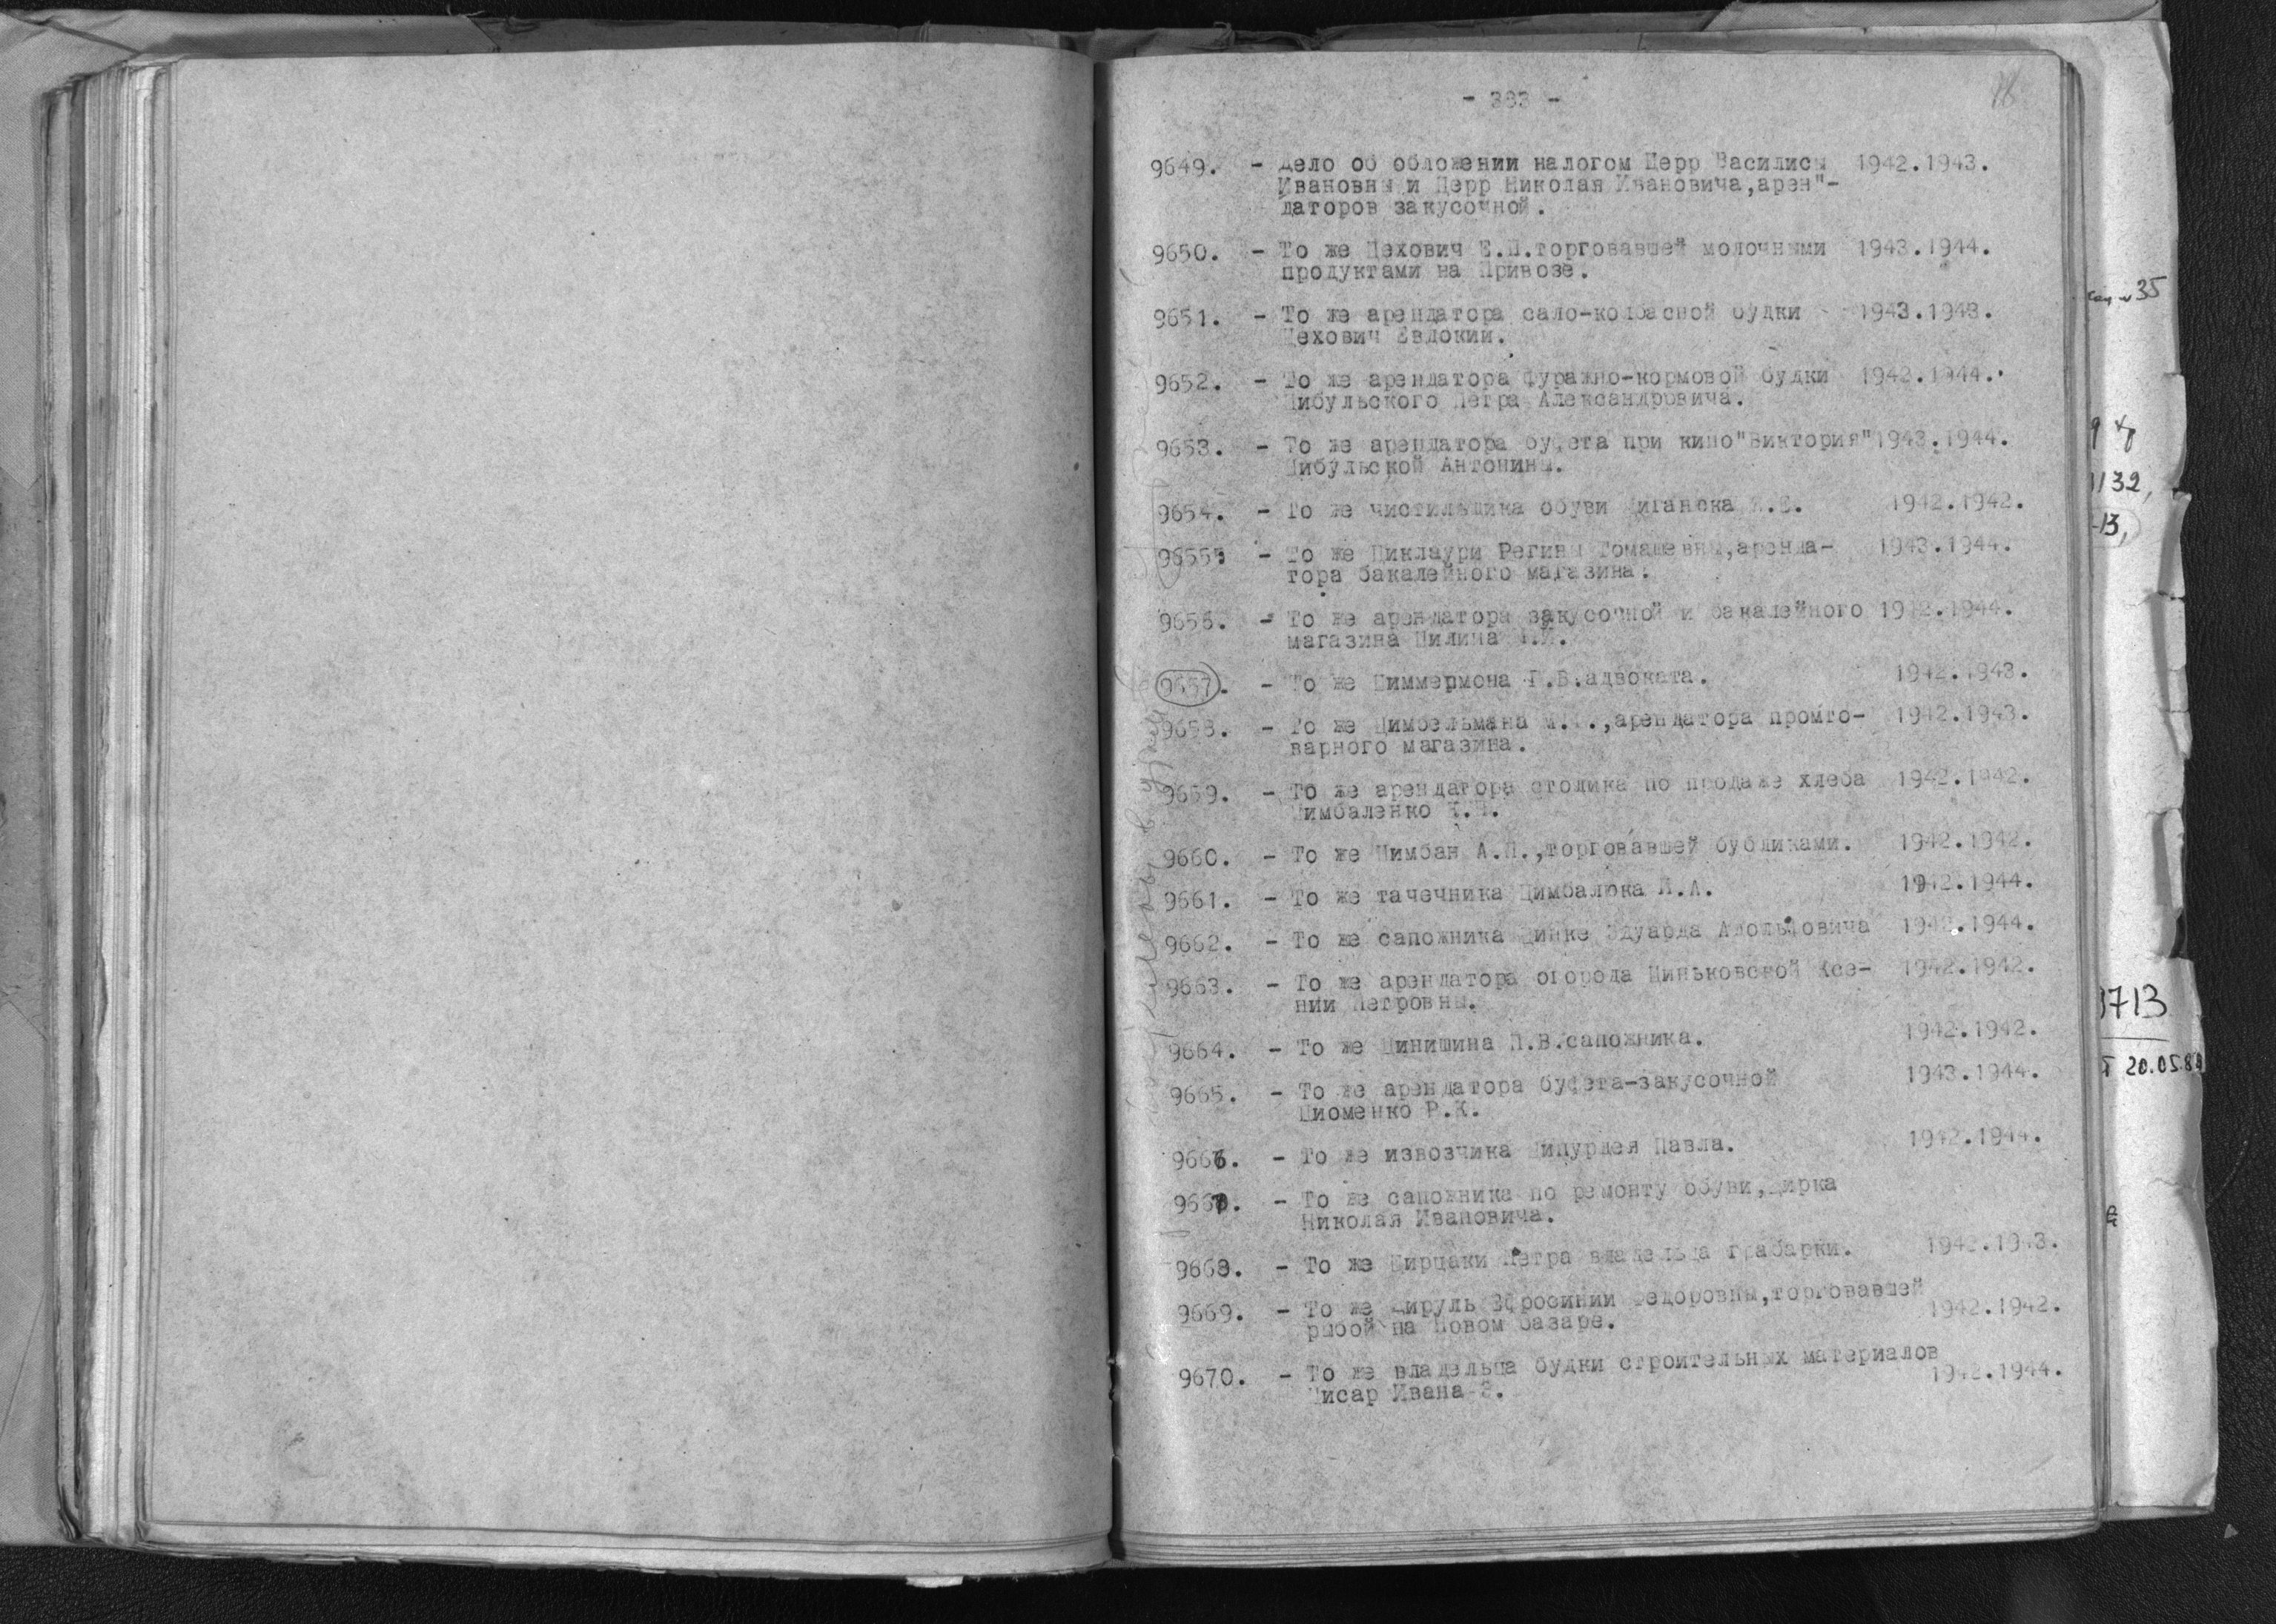 - 383 -
9649. - Дело об обложении налогом Церр Василисы 1942.1943.
Ивановны и Церр Николая Ивановича,арен"-
даторов закусочной.
9650. - То же Цехович Е.П.торговавшей молочными 1943.1944.
продуктами на Привозе.
9651. - То же арендатора сало-колбасной будки 1943.1943.
Цехович Евдокии.
9652. - То же арендатора фуражно-кормовой будки 1942.1944.
Цибульского Петра Александровича.
9653. - То же арендатора буфета при кино"Виктория"1943.1944.
Цибульской Антонины.
9654. - То же чистильщика обуви Циганска 1942.1942.
9655. - То же Циклаури Регины Томашевны,аренда- 1943.1944.
тора бакалейного магазина.
9656. - То же арендатора закусочной и бакалейного 1942.1944.
магазина Цилина
9657. - То же Циммермона Г.В.адвоката. 1942.1943.
9658. - То же Цимбельмана М. ,арендатора промто- 1942.1943.
варного магазина.
9659. - То же арендатора столика по продаже хлеба 1942.1942.
Цимбаленко
9660. - То же Цимбан А.П.,торговавшей бубликами. 1942.1942.
9661. - То же тачечника Цимбалюка И.А. 1942.1944.
9662. - То же сапожника Цинке Эдуарда Адольфовича 1942.1944.
9663. - То же арендатора огорода Циньковской Ксе- 1942.1942.
нии Петровны.
9664. - То же Цинишина П.В.сапожника. 1942.1942.
9665. - То же арендатора буфета-закусочной 1943.1944.
Циоменко Р.К.
9666. - То же извозчика Ципурдея Павла. 1942.1944.
9667. - То же сапожника по ремонту обуви,Цирка
Николая Ивановича.
9668. - То же Цирцаки Петра владельца грабарки. 1942.1943.
9669. - То же Цируль Ефросинии Федоровны,торговавшей
рыбой на Новом базаре. 1942.1942.
9670. - То же владельца будки строительных материалов
Цисар Ивана 1942.1944.
35
1132,
-13,
1713
20.05.8